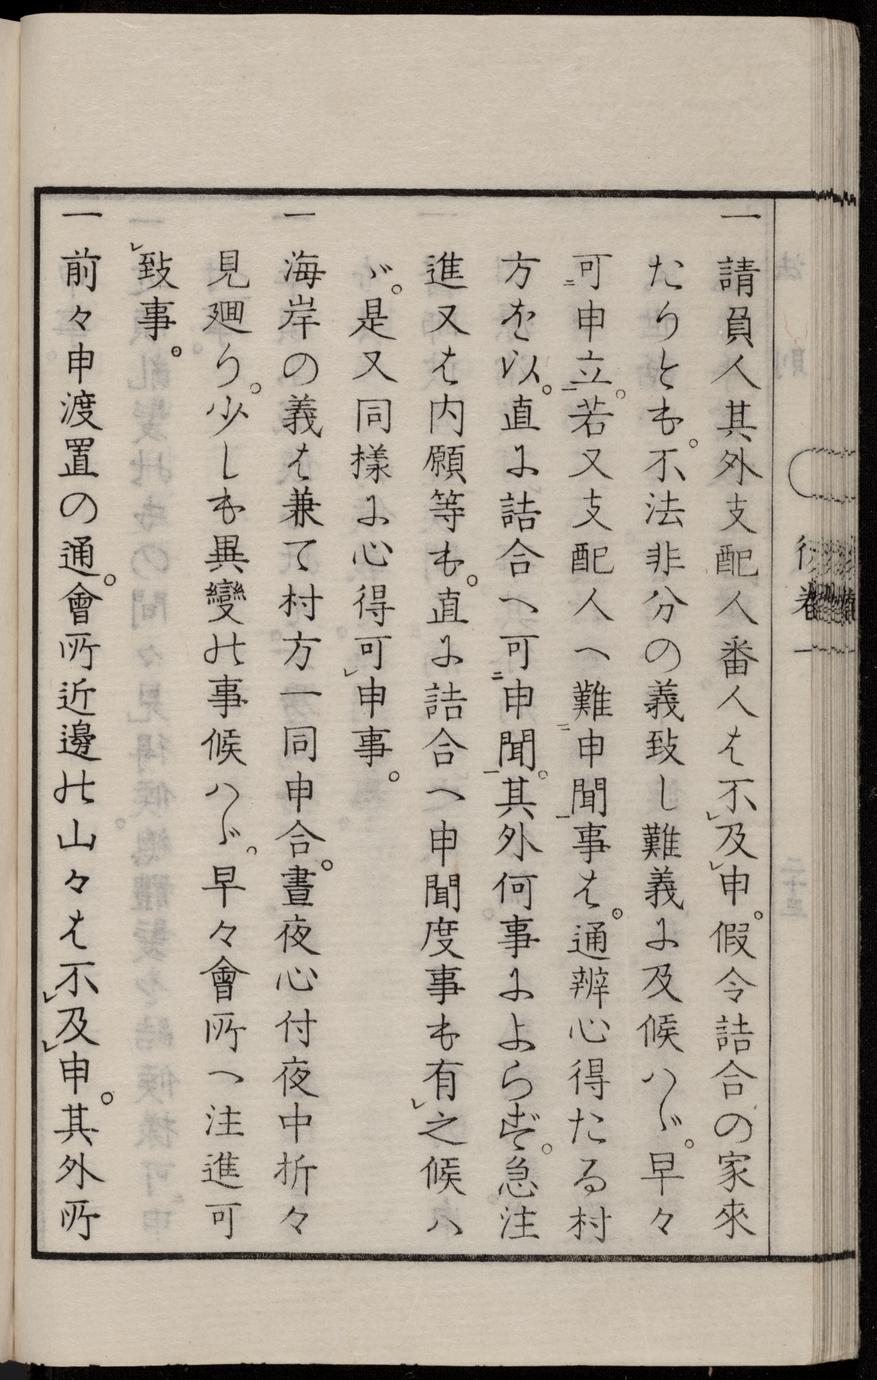 一 請負人其外支配人番人は不及申。假令詰合の家來
たりとも。不法非分の義致し難義に及候ハゞ。早々
可申立。若又支配人へ難申聞事は。通辨心得たる村
方を以。直に詰合へ可申聞。其外何事によらず。急注
進又は内願等も。直に詰合へ申聞度事も有之候ハ
ゞ。是又同樣に心得可申事。
一 海岸の義は兼て村方一同申合。晝夜心付夜中折々
見廻り。少しも異變の事候ハゞ。早々會所へ注進可
致事。
一 前々申渡置の通。會所近邊の山々は不及申。其外所